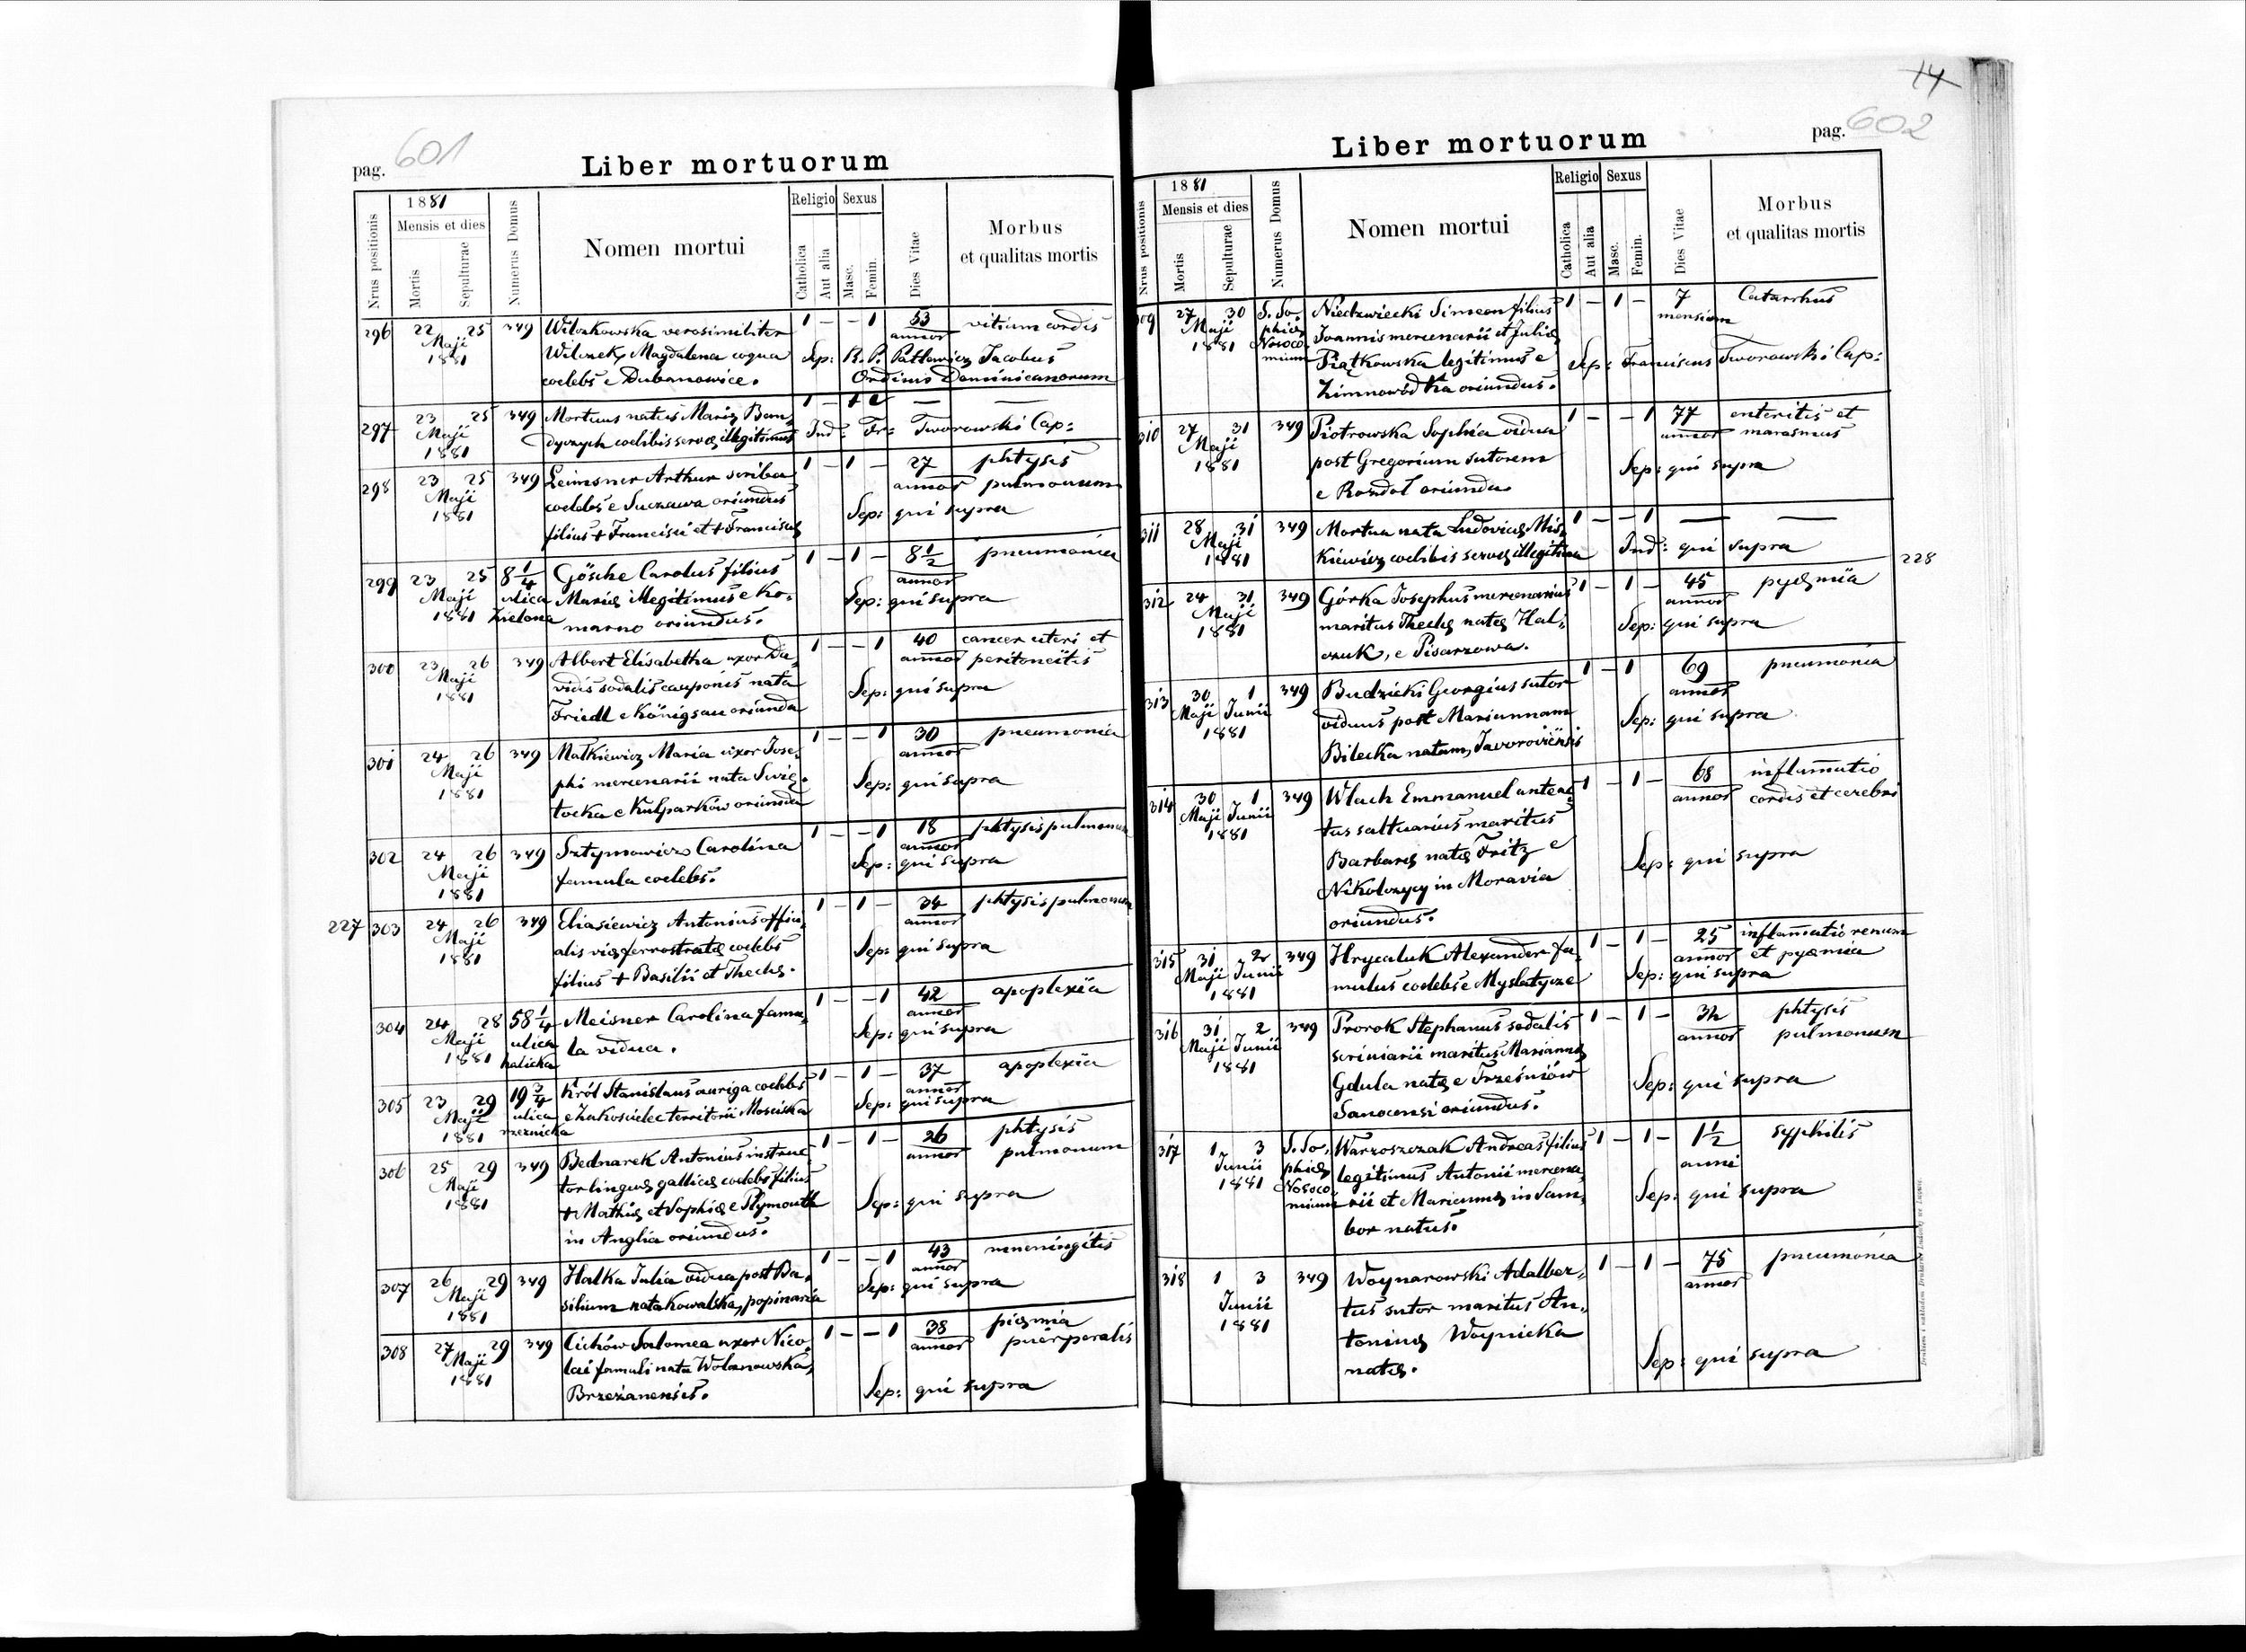 14
pag. 601
Liber mortuorum
Nrus positionis
1881
Mensis et dies
Mortis
Sepulturae
Numerus Domus
Nomen mortui
Religio
Catholica
Aut alia
Sexus
Masc.
Femin.
Dies Vitae
Morbus
et qualitas mortis
296 22 25 349 Wilczkowska verosimiliter 1 — — 1 53 vitium cordis
Maji annor
1881 Wilczek, Magdalena coqua Sep: R. P. Patłowicz Jacobus
coelebs e Dubanowice. Ordinis Dominicanorum
297 23 25 349 Mortuus natus Marię Ban- 1 — — —
Maji dyrzych coelibis servę illegitimus Ind: Fr: Tworowski Cap:
1881
298 23 25 349 Leimsner Arthur scriba 1 — 1 — 27 phtysis
Maji coelebs e Suczawa oriundus annor pulmonum
1881 filius + Francisci et + Franciscę Sep: qui supra
299 23 25 8 1/4 Gösche Carolus filius 1 — 1 — 8 1/2 pneumonia
Maji ulica Marię illegitimus e Ko- annor
1881 Zielona marno oriundus. Sep: qui supra
300 23 26 349 Albert Elisabetha uxor Da- 1 — — 1 40 cancer uteri et
Maji vidis sodalis cauponis nata annor peritoneitis
1881 Friedl e Königsau oriunda Sep: qui supra
301 24 26 349 Matkiewicz Maria uxor Jose- 1 — — 1 30 pneumonia
Maji phi mercenarii nata Swię- annor
1881 tocka e Kulparków oriunda Sep: qui supra
302 24 26 349 Sztymowicz Carolina 1 — — 1 18 phtysis pulmonum
Maji famula coelebs. annor
1881 Sep: qui supra
227 303 24 26 349 Eliasiewicz Antonius offici- 1 — 1 — 34 phtysis pulmonum
Maji alis vię ferrostratę coelebs annor
1881 filius + Basilii et Theclę. Sep: qui supra
304 24 28 58 1/4 Meisner Carolina famu- 1 — — 1 42 apoplexia
Maji ulica la vidua. annor
1881 halicka Sep: qui supra
305 23 29 19 3/4 Król Stanislaus auriga coelebs 1 — 1 — 37 apoplexia
Maji ulica e Zakościelec territorii Mosciska annor
1881 rzeznicka Sep: qui supra
306 25 29 349 Bednarek Antonius instruc- 1 — 1 — 26 phtysis
Maji tor linguę gallicę coelebs filius annor pulmonum
1881 + Mathię et Sophię e Plymouth Sep: qui supra
in Anglia oriundus.
307 26 29 349 Halka Julia vidua post Ba- 1 — — 1 43 meneningitis
Maji silium nata Kowalska, popinaria annor
1881 Sep: qui supra
308 27 29 349 Cichów Salomea uxor Nico- 1 — — 1 38 pięmia
Maji lai famuli nata Wolanowska, annor puerperalis
1881 Brzezanensis. Sep: qui supra
pag. 602
Liber mortuorum
Nrus positionis
1881
Mensis et dies
Mortis
Sepulturae
Numerus Domus
Nomen mortui
Religio
Catholica
Aut alia
Sexus
Masc.
Femin.
Dies Vitae
Morbus
et qualitas mortis
309 27 30 S. So- Niedzwiecki Simeon filius 1 — 1 — 7 Catarrhus
Maji phię Joannis mercenarii et Julię mensium
1881 Nosoco- Piątkowska legitimus e Sep: Franciscus Tworowski Cap:
mium Zimnowódka oriundus.
310 27 31 349 Piotrowska Sophia vidua 1 — — 1 77 enteritis et
Maji post Gregorium sutorem annor marasmus
1881 e Rozdoł oriunda Sep: qui supra
311 28 31 349 Mortua nata Ludovicę Mis- 1 — — 1 — —
Maji kiewicz coelibis servę illegitima Ind: qui supra
1881
228
312 24 31 349 Górka Josephus mercenarius 1 — 1 — 45 pyęmia
Maji maritus Theclę natę Hal- annor
1881 czuk, e Pisarzowa. Sep: qui supra
313 30 1 349 Budzicki Georgius sutor 1 — 1 69 pneumonia
Maji Junii viduus post Mariannam annor
1881 Bilecka natam, Javoroviensis Sep: qui supra
314 30 1 349 Wlach Emmanuel antea- 1 — 1 — 68 inflammatio
Maji Junii tus saltuarius maritus annor cordis et cerebri
1881 Barbarę natę Fritz e
Nikolczycy in Moravia Sep: qui supra
oriundus.
315 31 2 349 Hrycaluk Alexander fa- 1 — 1 — 25 inflamatio renum
Maji Junii mulus coelebs e Myslatycze annor et pyæmia
1881 Sep: qui supra
316 31 2 349 Prorok Stephanus sodalis 1 — 1 — 34 phtysis
Maji Junii scriniarii maritus Mariannę annor pulmonum
1881 Gdula natę e Trześniów Sep: qui supra
Sanocensi oriundus.
317 1 3 S. So- Warzoszczak Andreas filius 1 — 1 — 1 1/2 syphilis
Junii phię legitimus Antonii mercena- anni
1881 Nosoco- rii et Mariannę in Sam- Sep: qui supra
mium bor natus.
318 1 3 349 Woynarowski Adalber- 1 — 1 — 75 pneumonia
Junii tus sutor maritus An- annor
1881 toninę Woynicka
natę. Sep: qui supra